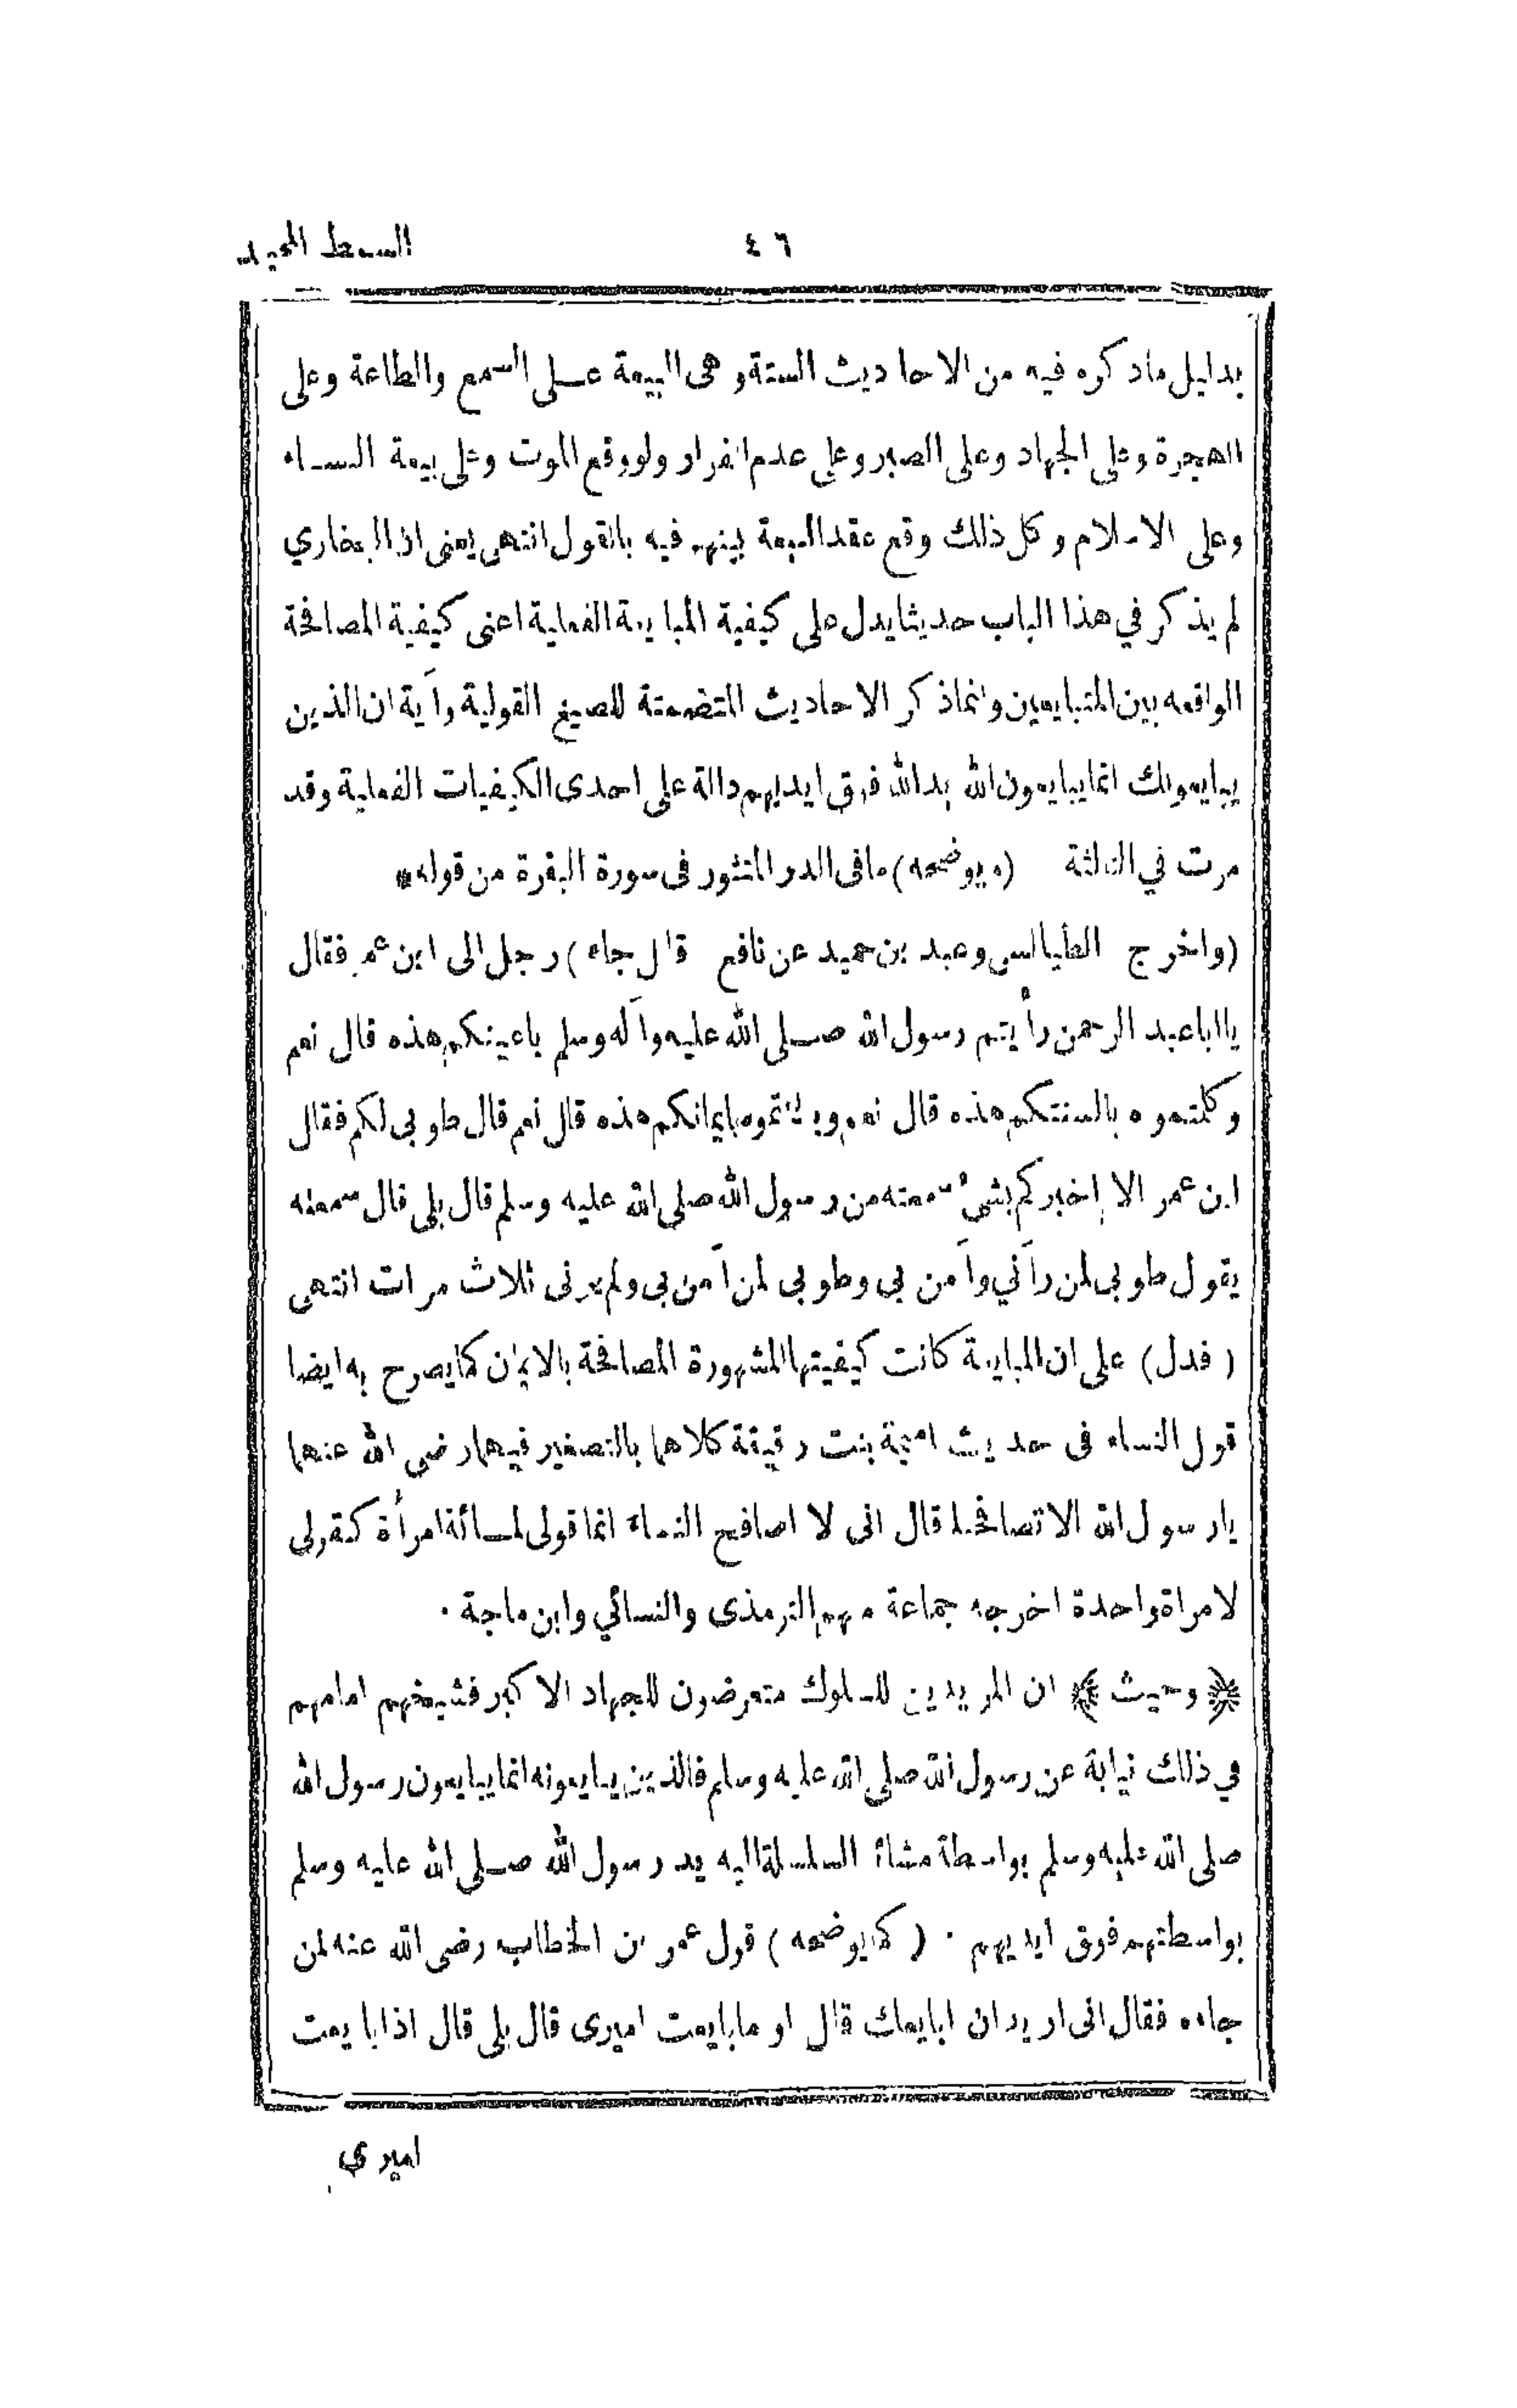 السمط المجيد
٤٦
بدليل ماذكره فيه من الاحاديث الستة وهى البيعة على السمع والطاعة وعلى
الهجرة وعلى الجهاد وعلى الصبر وعلى عدم الفرار ولو وقع الموت وعلى بيعة النساء
وعلى الاسلام وكل ذلك وقع عقد البيعة بينهم فيه بالقول انتهى يعنى ان البخاري
لم يذكر في هذا الباب حديثا يدل على كيفية المبايعة الفعلية اعنى كيفية المصافحة
الواقعه بين المتبايعين وانما ذكر الاحاديث المتضمنة للصيغ القولية وآية ان الذين
يبايعونك انما يبايعون الله يد الله فوق ايديهم دالة على احدى الكيفيات الفعلية وقد
مرت في الثالثة (ويوضحه) مافى الدر المنثور فى سورة البقرة من قوله
(واخرج الطيالسى وعبد بن حميد عن نافع قال جاء) رجل الى ابن عمر فقال
يا ابا عبد الرحمن رأيتم رسول الله صلى الله عليه وآله وسلم باعينكم هذه قال نعم
وكلتموه بالسنتكم هذه قال نعم وبايعتموه بايمانكم هذه قال نعم قال طوبى لكم فقال
ابن عمر الا إخبركم بشىء سمعته من رسول الله صلى الله عليه وسلم قال بلى قال سمعته
يقول طوبى لمن رآني وآمن بي وطوبى لمن آمن بى ولم يرنى ثلاث مرات انتهى
(فدل) على ان المبايعة كانت كيفيتها المشهورة المصافحة بالايمان كما يصرح به ايضا
قول النساء فى حديث اميمة بنت رقيقة كلاهما بالتصغير فيهما رضى الله عنهما
يا رسول الله الا تصافحنا قال انى لا اصافح النساء انما قولى لمائة امرأة كقولى
لامراة واحدة اخرجه جماعة منهم الترمذى والنسائي وابن ماجة ٠
﴿ وحيث ﴾ ان المريدين للسلوك متعرضون للجهاد الاكبر فشيخهم امامهم
في ذلك نيابة عن رسول الله صلى الله عليه وسلم فالذين يبايعونه انما يبايعون رسول الله
صلى الله عليه وسلم بواسطة مشائخ السلسلة اليه يد رسول الله صلى الله عليه وسلم
بواسطتهم فوق ايديهم ٠ (كما يوضحه) قول عمر بن الخطاب رضى الله عنه لمن
جاءه فقال انى اريد ان ابايعك قال او ما بايعت اميرى قال بلى قال اذا بايعت
اميري